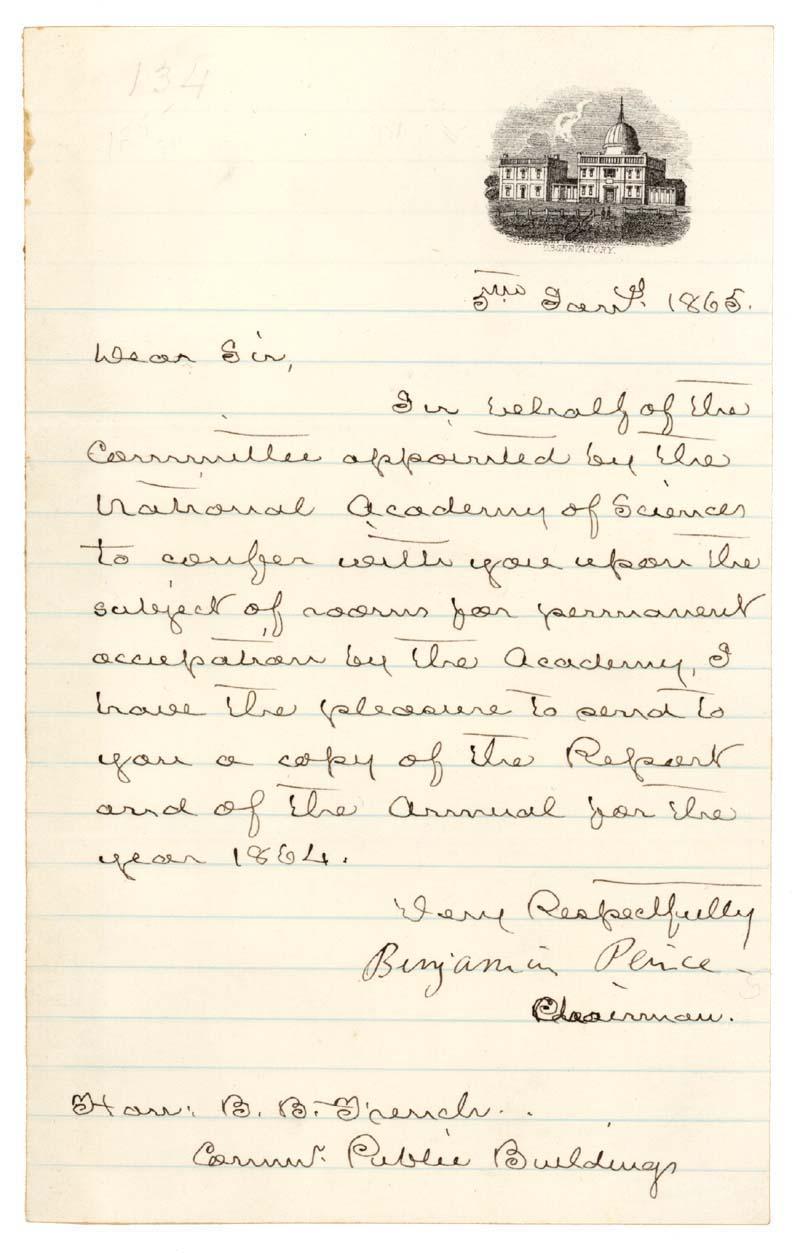 134
OBSERVATORY.
5th Jany. 1865.
Dear Sir,
In behalf of the
Committee appointed by the
National Academy of Sciences
to confer with you upon the
subject of rooms for permanent
occupation by the Academy, I
have the pleasure to send to
you a copy of the Report
and of the Annual for the
year 1864.
Very Respectfully
Benjamin Peirce
Chairman.
Hon: B. B. French.
Commr. Public Buildings